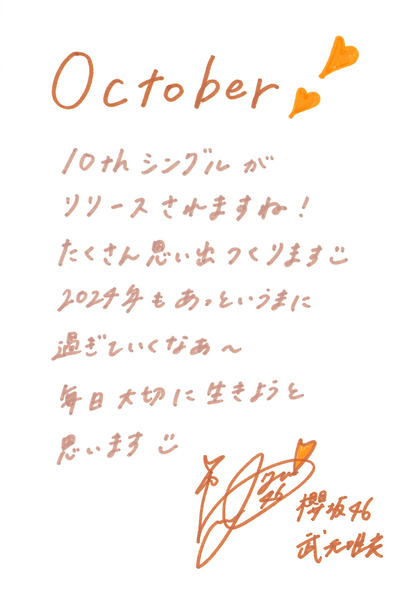 October
10thシングルが
リリースされますね!
たくさん思い出つくります
2024年もあっというまに
過ぎていくなあ〜
毎日大切に生きようと
思います
46
櫻坂46
武元唯衣